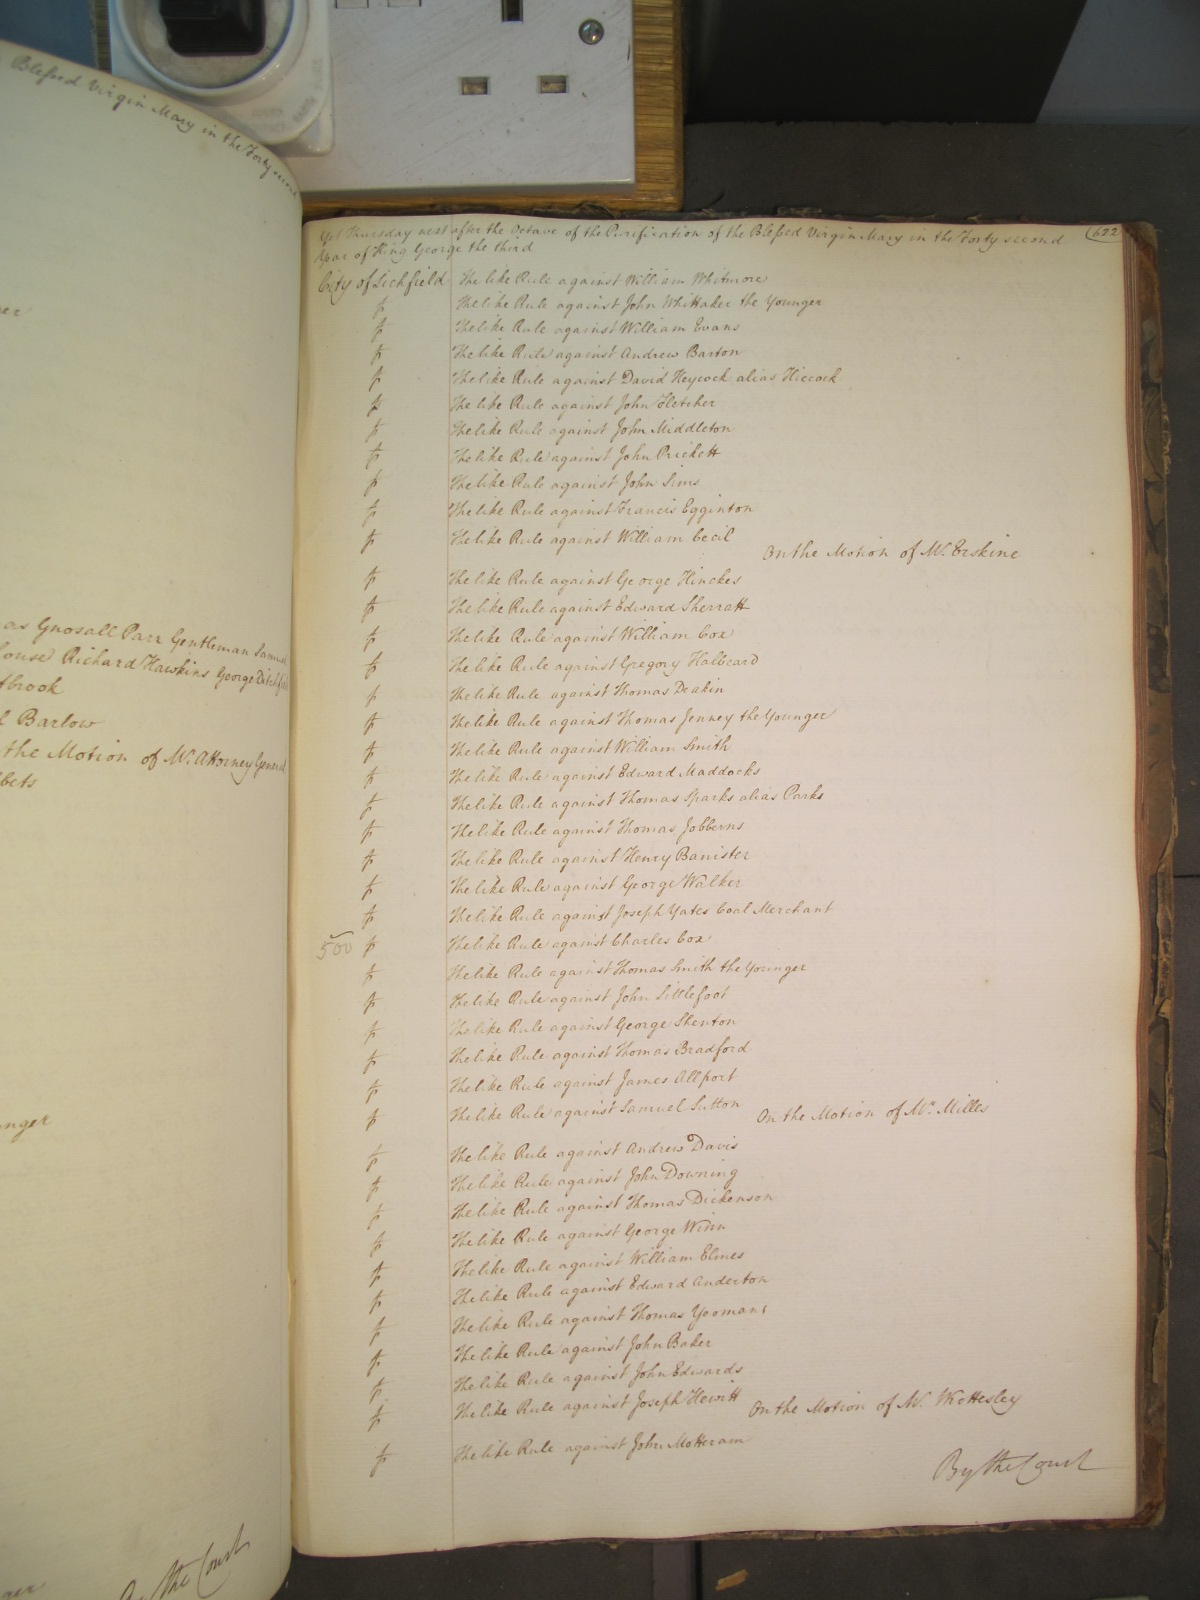 Blessed Virgin Mary in the Forty second
as Gnosall Parr Gentleman Samuel
Richard Hawkins George
tbrook
l Barlow
the Motion of Mr. Attorney General
bbets
nger
the Court
Yet Thursday next after the Octave of the Purification of the Blessed Virgin Mary in the Forty second 622
Year of King George the third
City of Lichfield The like Rule against William Whitmore
The like Rule against John Whittaker the Younger
The like Rule against William Evans
The like Rule against Andrew Barton
The like Rule against David Heycock alias Hiccock
The like Rule against John Fletcher
The like Rule against John Middleton
The like Rule against John Prickett
The like Rule against John Sims
The like Rule against Francis Egginton
The like Rule against William Cecil
On the Motion of Mr. Erskine
The like Rule against George Hinckes
The like Rule against Edward Sherratt
The like Rule against William Cox
The like Rule against Gregory Halbeard
The like Rule against Thomas Deakin
The like Rule against Thomas Jenney the Younger
The like Rule against William Smith
The like Rule against Edward Maddocks
The like Rule against Thomas Sparks alias Parks
The like Rule against Thomas Jobberns
The like Rule against Henry Banister
The like Rule against George Walker
The like Rule against Joseph Yates Coal Merchant
500 The like Rule against Charles Cox
The like Rule against Thomas Smith the Younger
The like Rule against John Littlefoot
The like Rule against George Shenton
The like Rule against Thomas Bradford
The like Rule against James Allport
The like Rule against Samuel Sutton On the Motion of Mr. Milles
The like Rule against Andrew Davis
The like Rule against John Downing
The like Rule against Thomas Dickenson
The like Rule against George Winn
The like Rule against William Elmes
The like Rule against Edward Anderton
The like Rule against Thomas Yoomans
The like Rule against John Baker
The like Rule against John Edwards
The like Rule against Joseph Hewitt On the Motion of Mr. Wrottesley
The like Rule against John Motteram
By the Court